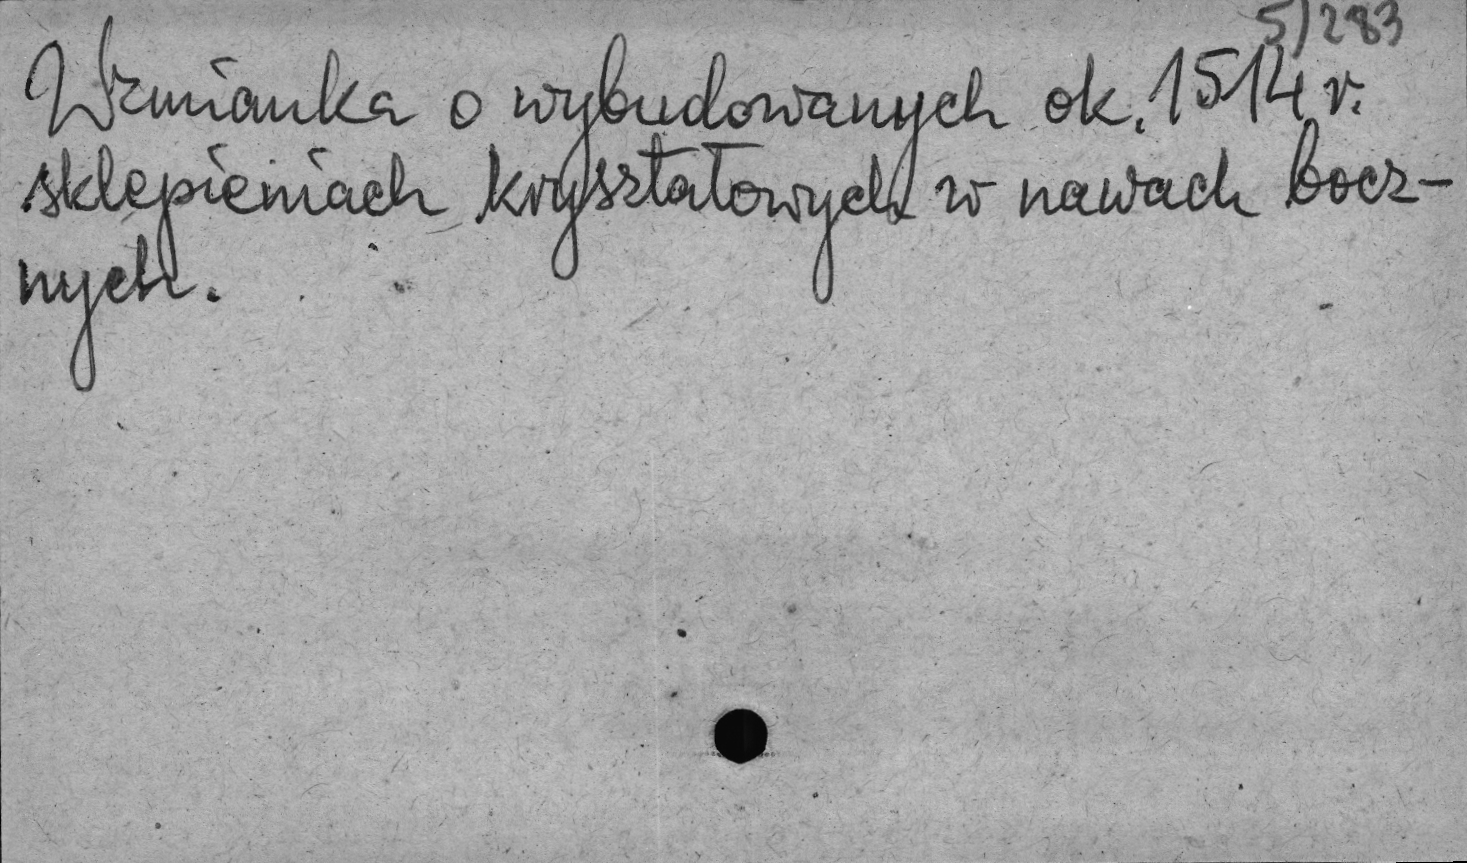 5/283
Wzmianka o wybudowanych ok. 1514 r.
sklepieniach kryształowych w nawach bocz-
nych.